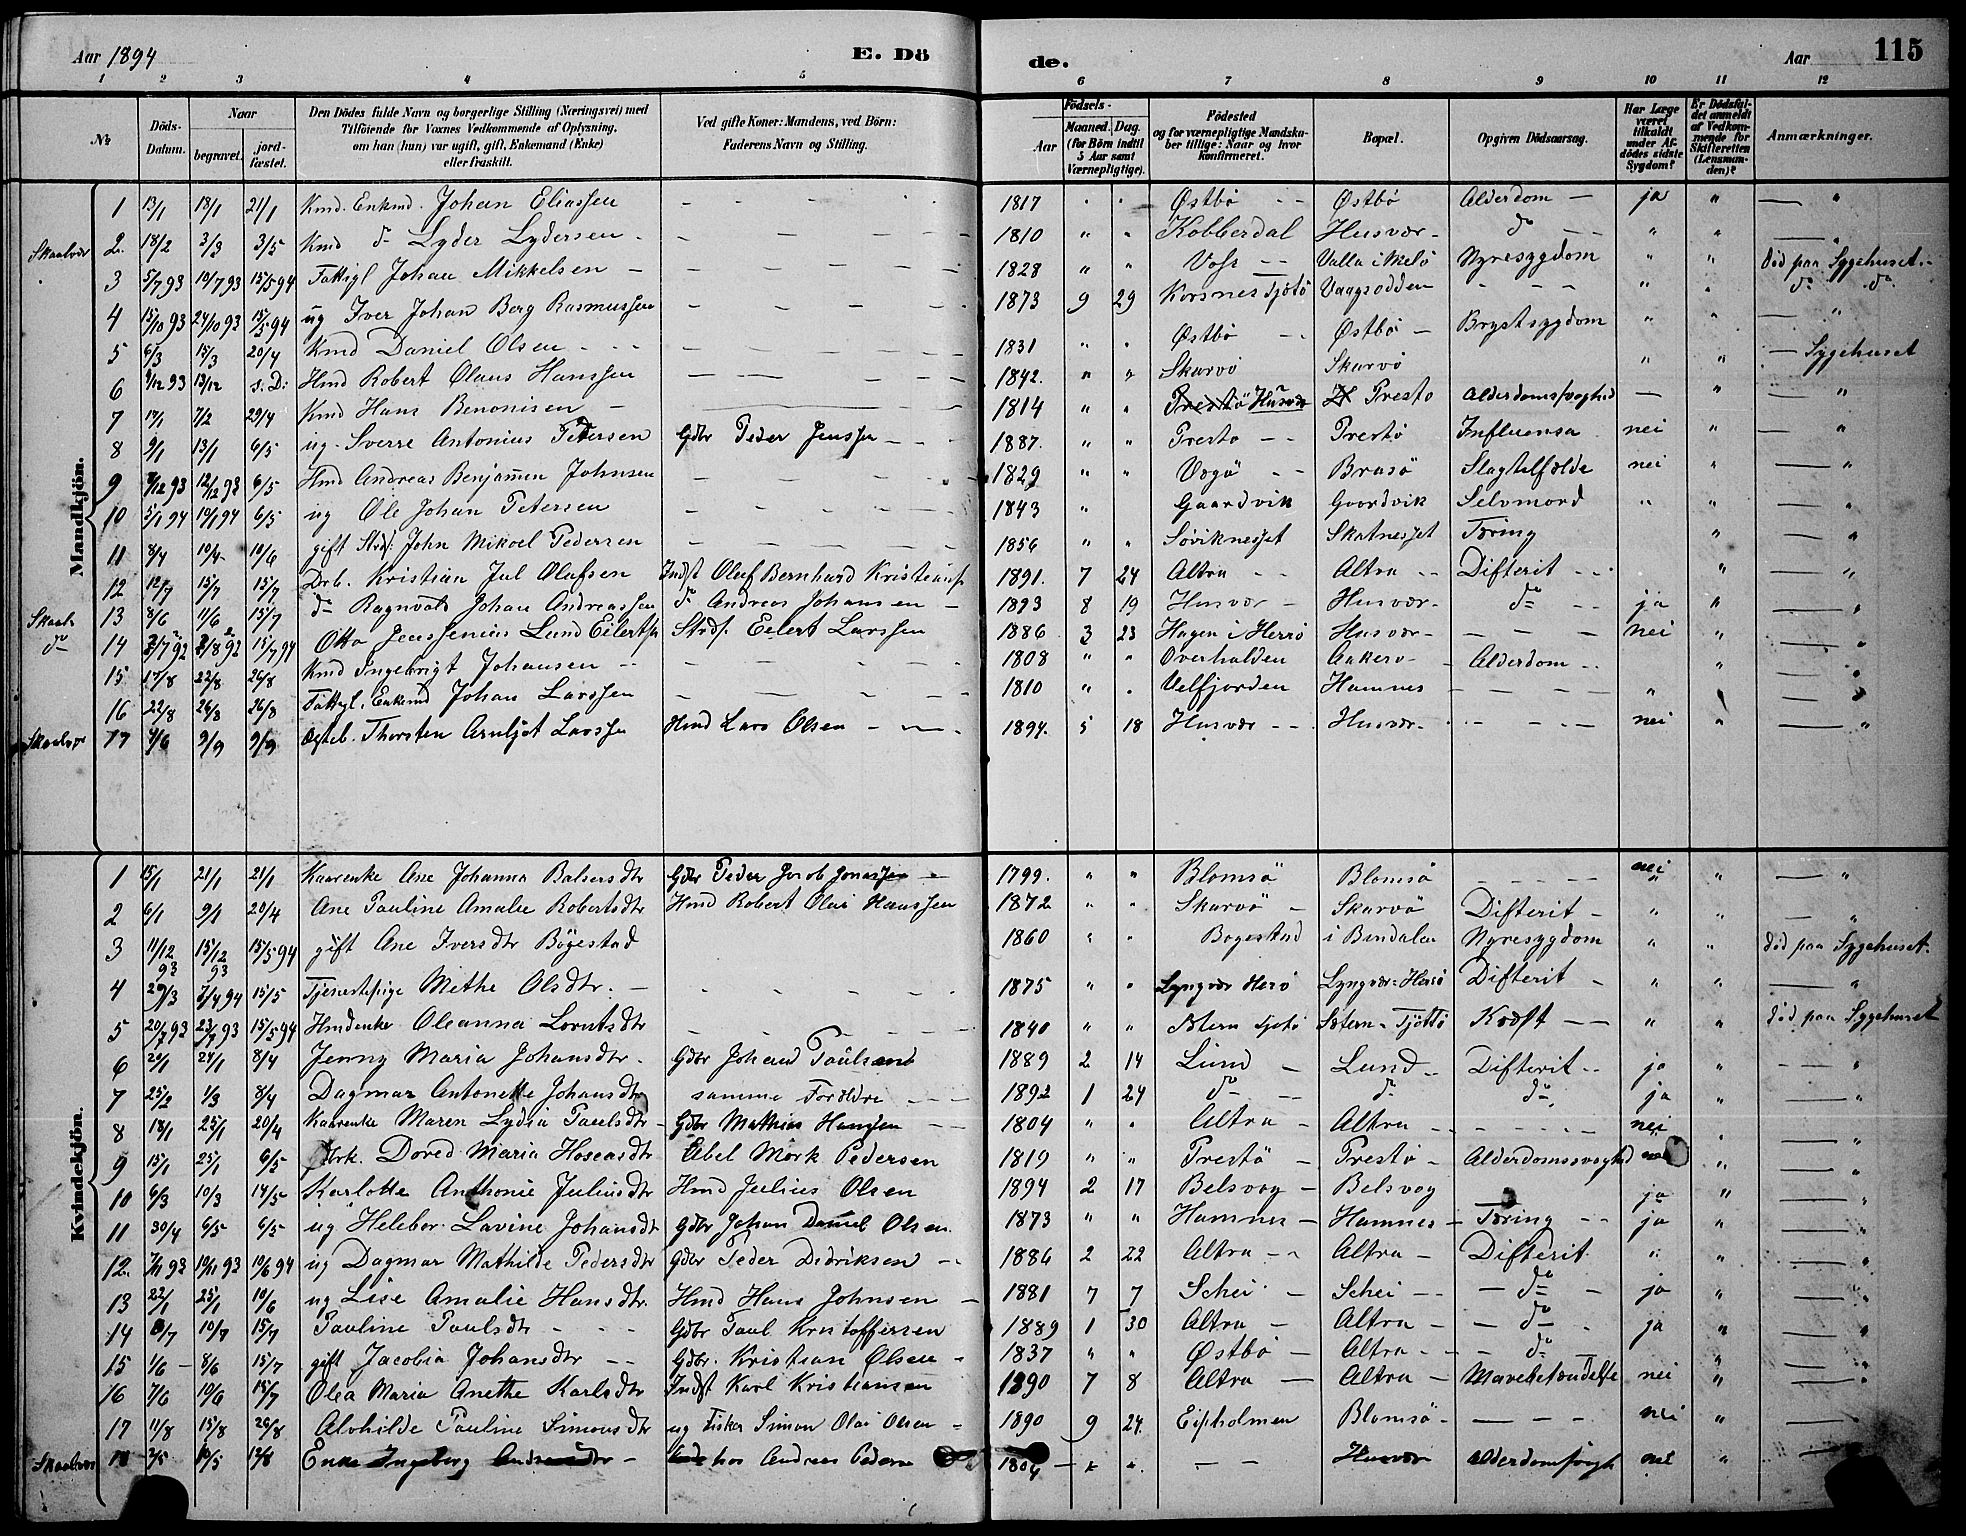 Aar 1894
E. Dö
de.
Aar
115
1 2 3 4 5 6 7 8 9 10 11 12
No
Döds-Datum.
Naar
begravet.
jord-fæstet.
Den Dödes fulde Navn og borgerlige Stilling (Næringsvei) med
Tilföiende for Voxnes Vedkommende af Oplysning,
om han (hun) var ugift, gift, Enkemand (Enke)
eller fraskilt.
Ved gifte Koner: Mandens, ved Börn:
Faderens Navn og Stilling.
Födsels-
Aar
Maaned. Dag.
(for Börn indtil
5 Aar samt
Værnepligtige).
Födested
og for værnepligtige Mandska-
ber tillige: Naar og hvor
konfirmeret.
Bopæl.
Opgiven Dödsaarsag.
Har Læge
været
tilkaldt
under Af-
dödes sidste
Sygdom?
Er Dödsfal-
det anmeldt
af Vedkom-
mende for
Skifteretten
(Lensman-
den)?
Anmærkninger.
Mandkjön.
1 13/1 18/1 21/1 Kmd. Enkmd. Johan Eliassen - - - - 1817 " " Østbö - - Østbö Alderdom - ja " — "
Skaalvær 2 18/2 3/3 3/5 Kmd do Lyder Lydersen - - - - 1810 " " Kobberdal Husvær - do - - " " — "
3 5/7 93 10/7 93 15/5 94 Fattigl Johan Mikkelsen - - - - 1828 " " Voss - - Valla i Alstö Nyresygdom " " död paa Sygehuset.
4 15/10 93 24/10 93 15/5 94 ug Iver Johan Berg Rasmussen - - - - 1873 9 29 Korsnes Tjötö Vaagsodden - - - " " do do
5 6/3 15/3 20/4 Kmd Daniel Olsen - - - 1831 " " Østbö - - Østbö - Brystsygdom " " — "
6 9/12 93 13/12 s. D: Hmd Robert Olaus Hanssen - - - 1842. " " Skarvö Skarvö " " — Sygehuset
7 17/1 7/2 29/4 Kmd Hans Benonisen - 1814 " " Prestö Husvær Prestö Alderdomssvaghed — " — "
8 9/1 13/1 6/5 ug. Sverre Antonius Petersen Gdbr Peder Jenssen - - 1887. " " Prestö - - Prestö Influensa nei " — "
9 8/12 93 12/12 93 6/5 Hmd Andreas Benjamin Johnsen - - - 1829 " " Vægö - - Brasö Slagtilfælde nei " — "
10 5/1 94 19/1 94 6/5 ug Ole Johan Petersen - - - 1843 " Gaardvik Gaardvik Selvmord " " — "
11 8/4 10/4 10/6 gift Strds. John Mikael Pedersen - - - 1856 " " Söviknesset Skatnesset Tæring " — "
12 12/7 15/7 15/7 Drb. Kristian Jul Olufsen Indst Oluf Bernhard Kristians. 1891. 7 24 Altra - - Altra - - Difterit - - " — "
Skaal. 13 8/6 11/6 15/7 do Ragnvald Johan Andreassen do Andreas Johansen - 1893 8 19 Husvær - Husvær - do - - ja " — "
do 14 2/7 92 2/8 92 15/7 94 Otto Jenssenius Lund Eilertsen Strds. Eilert Larssen 1886 3 23 Hagen i Herö Husvær - - - - nei " — "
15 17/8 22/8 26/8 Kmd Ingebrigt Johansen - - - 1808 " " Overhalden Aakerö - Alderdom - - " — "
16 22/8 26/8 26/8 Fattigl. Enkemd Johan Larssen - - - 1810 " " Velfjorden Hamnes - - - - " " — "
Skaalvær 17 9/6 9/9 9/9 Ægteb. Thorsten Arnljot Larssen Hmd Lars Olsen - - 1894. 5 18 Husvær - - Husvær - - - - nei " — "
Kvindekjön.
1 15/1 21/1 21/1 Kaarenke Ane Johanna Balsersdtr Gdbr Peder Jacob Jonassen - 1799. " " Blomsö Blomsö - - - - nei " — "
2 6/1 9/1 20/4 Ane Pauline Amalie Robertsdtr Hmd Robert Olai Hanssen 1872 " " Skarvö - Skarvö Difterit - " " — "
3 11/12 93 15/12 93 15/5 94 gift Ane Iversdtr Bögestad 1860 " " Bogestad i Bindalen Nyresygdom " " död paa Sygehuset.
4 29/3 7/4 94 15/5 Tjenestepige Methe Olsdtr. - - - - - 1875 " " Lyngvær Herö Lyngvær - Herö Difterit - " " — "
5 20/7 93 23/7 93 15/5 94 Hmdenke Oleanna Lorntsdtr - - - 1840 " " Stern Tjötö Stern - Tjöttö Kræft - - " " död paa Sygehuset
6 20/1 24/1 8/4 Jenny Maria Johansdtr. Gdbr Johand Paulsand 1889 2 14 Lund - Lund - Difterit - - ja " — "
7 25/2 1/3 8/4 Dagmar Antonette Johansdtr samme Forældre - - 1892 1 24 do - - do do ja " — "
8 18/1 25/1 20/4 Kaarenke Maren Lydia Paulsdtr - Gdbr Mathias Hansen - - 1804 " " Altra - Altra - - - - - nei " — "
9 15/1 25/1 6/5 Dored Maria Hoseasdtr Abel Mörk Pedersen 1819 " " Prestö - Prestö - Alderdomssvaghed " — "
10 6/3 10/3 14/5 Karlotte Anthonie Juliusdtr Hmd Julius Olsen 1894 2 17 Belsvåg - Belsvåg ja " — "
11 30/4 6/5 6/5 ug Helebor. Lavine Johansdtr Gdbr Johan Daniel Olsen. 1873 " " Hamnes - Hamnes - Tæring - - ja " — "
12. 7/11 93 19/11 93 10/6 94 ug Dagmar Mathilde Pedersdtr Gdbr Peder Didriksen - - 1886 2 22 Altra - - Altra - Difterit " " — "
13 22/1 25/1 10/6 ug Lise Amalie Hansdtr. Hmd Hans Johnsen - 1881 7 7 Schei - Schei - - - do - ja " — "
14 8/7 10/7 15/7 Pauline Paulsdtr - - - Gdbr Paul Kristoffersen 1889 1 30 Altra - Altra - - do - ja " — "
15 1/6 - 8/6 15/7 gift Jacobia Johansdtr - - Gdbr. Kristian Olsen - 1837 " " Østbö - Altra - - - do - " — "
16 7/6 10/6 15/7 Olea Maria Anethe Karlsdtr Indst Karl Kristiansen 1890 7 8 Altra — Altra - Mavebetændelse nei " — "
17 11/8 15/8 26/8 Alvhilde Pauline Simonsdtr ug Fisker Simon Olai Olsen - 1890 9 24. Eipholmen Blomsö - - - - nei " — "
Skaalvær 18 2/5 10/5 12/8 Enke Ingeborg Andreasdtr - hos Andreas Peders 1804 - " " - - Husvær Alderdomssvagh nei " — "